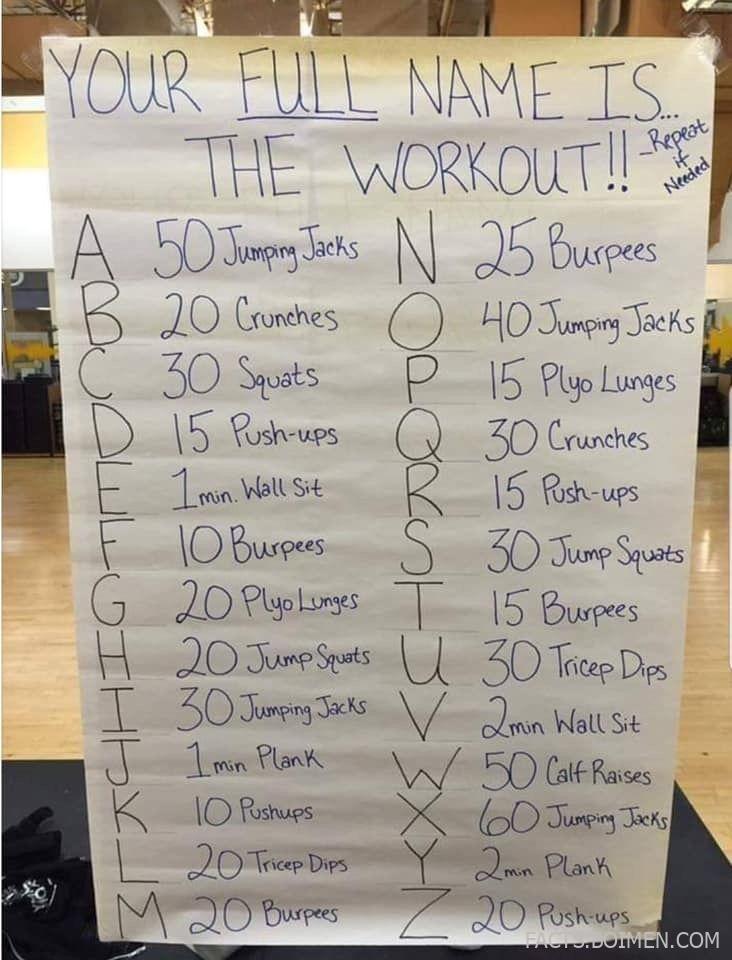 YOUR FULL NAME IS...
THE WORKOUT!!
-Repeat
if
Needed
A 50 Jumping Jacks
B 20 Crunches
C 30 Squats
D 15 Push-ups
E 1 min. Wall Sit
F 10 Burpees
G 20 Plyo Lunges
H 20 Jump Squats
I 30 Jumping Jacks
J 1 min Plank
K 10 Pushups
L 20 Tricep Dips
M 20 Burpees
N 25 Burpees
O 40 Jumping Jacks
P 15 Plyo Lunges
Q 30 Crunches
R 15 Push-ups
S 30 Jump Squats
T 15 Burpees
U 30 Tricep Dips
V 2min Wall Sit
W 50 Calf Raises
X 60 Jumping Jacks
Y 2min Plank
Z 20 Push-ups
FACTS.DOIMEN.COM